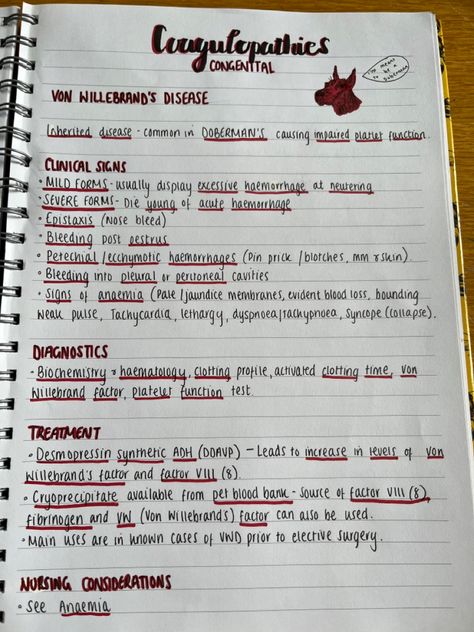 Coagulopathies
CONGENITAL
This means to be a doberman
VON WILLEBRAND'S DISEASE
Inherited disease - common in DOBERMAN'S causing impaired platlet function.
CLINICAL SIGNS
• MILD FORMS - usually display excessive haemorrhage at neutering
• SEVERE FORMS - Die young of acute haemorrhage
• Epistaxis (Nose bleed)
• Bleeding post oestrus
• Petechial/ecchymotic haemorrhages (Pin prick/blotches, mm & skin)
• Bleeding into pleural or peritoneal cavities
• Signs of anaemia (Pale/jaundice membranes, evident blood loss, bounding
weak pulse, Tachycardia, lethargy, dyspnoea/tachypnoea, Syncope (collapse).
DIAGNOSTICS
• Biochemistry & haematology, clotting profile, activated clotting time, Von
Willebrand factor, platelet function test.
TREATMENT
• Desmopressin synthetic ADH (DDAVP) - Leads to increase in levels of Von
Willebrand's factor and factor VIII (8).
• Cryoprecipitate available from pet blood bank - source of factor VIII (8),
fibrinogen and VW (Von Willebrand's) factor can also be used.
• Main uses are in known cases of VWD prior to elective surgery.
NURSING CONSIDERATIONS
• See Anaemia